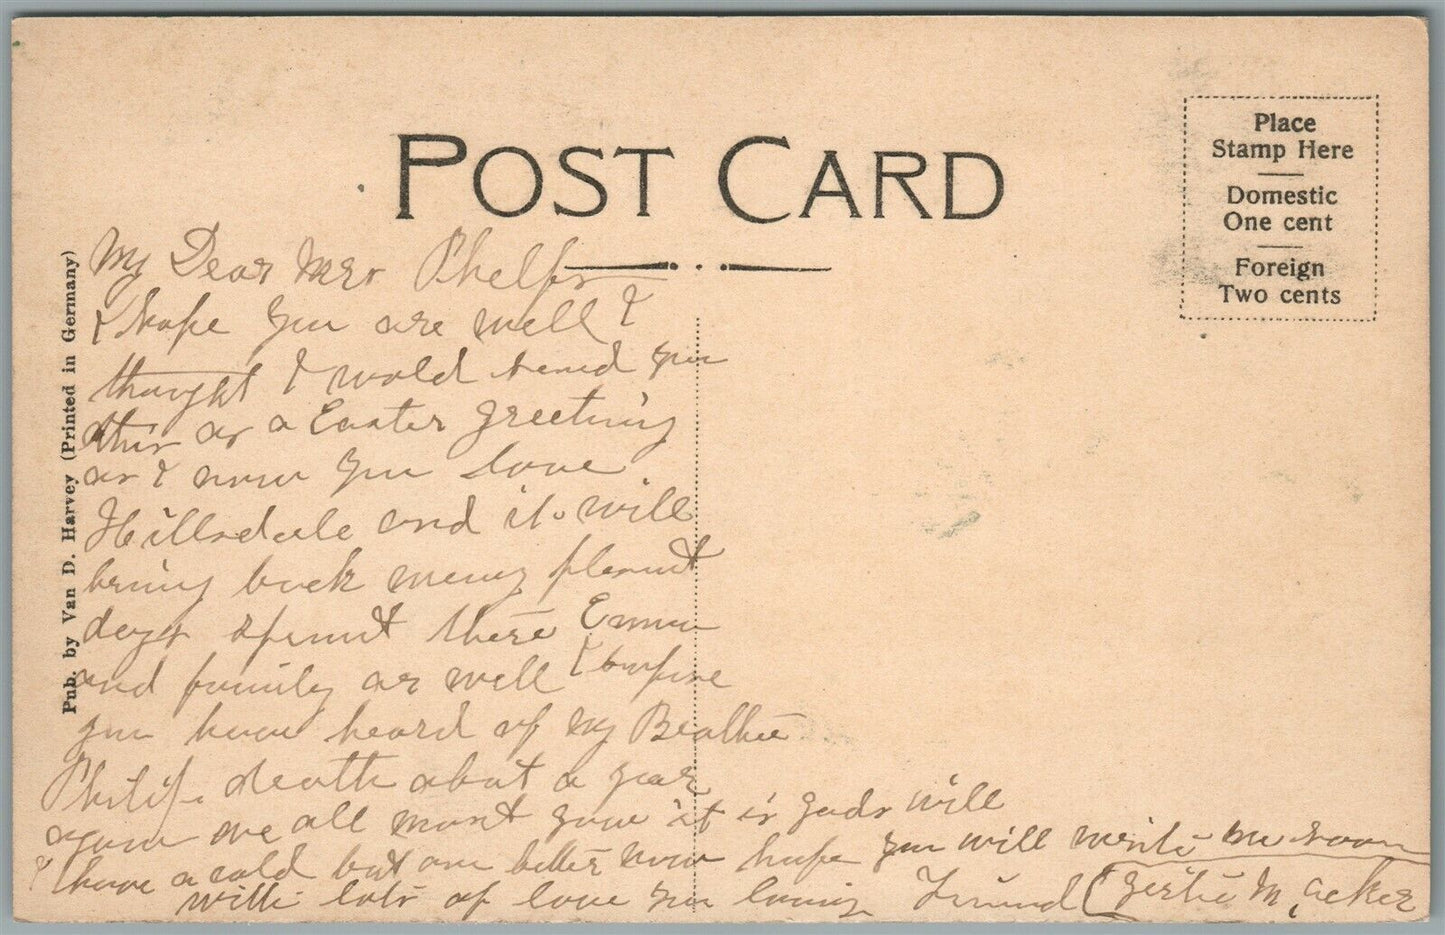 POST CARD
Place
Stamp Here
Domestic
One cent
Foreign
Two cents
Pub. by Van D. Harvey (Printed in Germany)
My Dear Mrs Phelps
I hope you are well I
thought I wold send you
this as a Easter greeting
as I now you love
Hillsdale and it will
bring back meny plesent
days spent there Emma
and family ar well I
you have heard of my
Philip death about a year
agow we all must gow it is gods will
I have a cold but am better now hope you will write me soon
with lots of love your loving Friend Gertie M. Acker